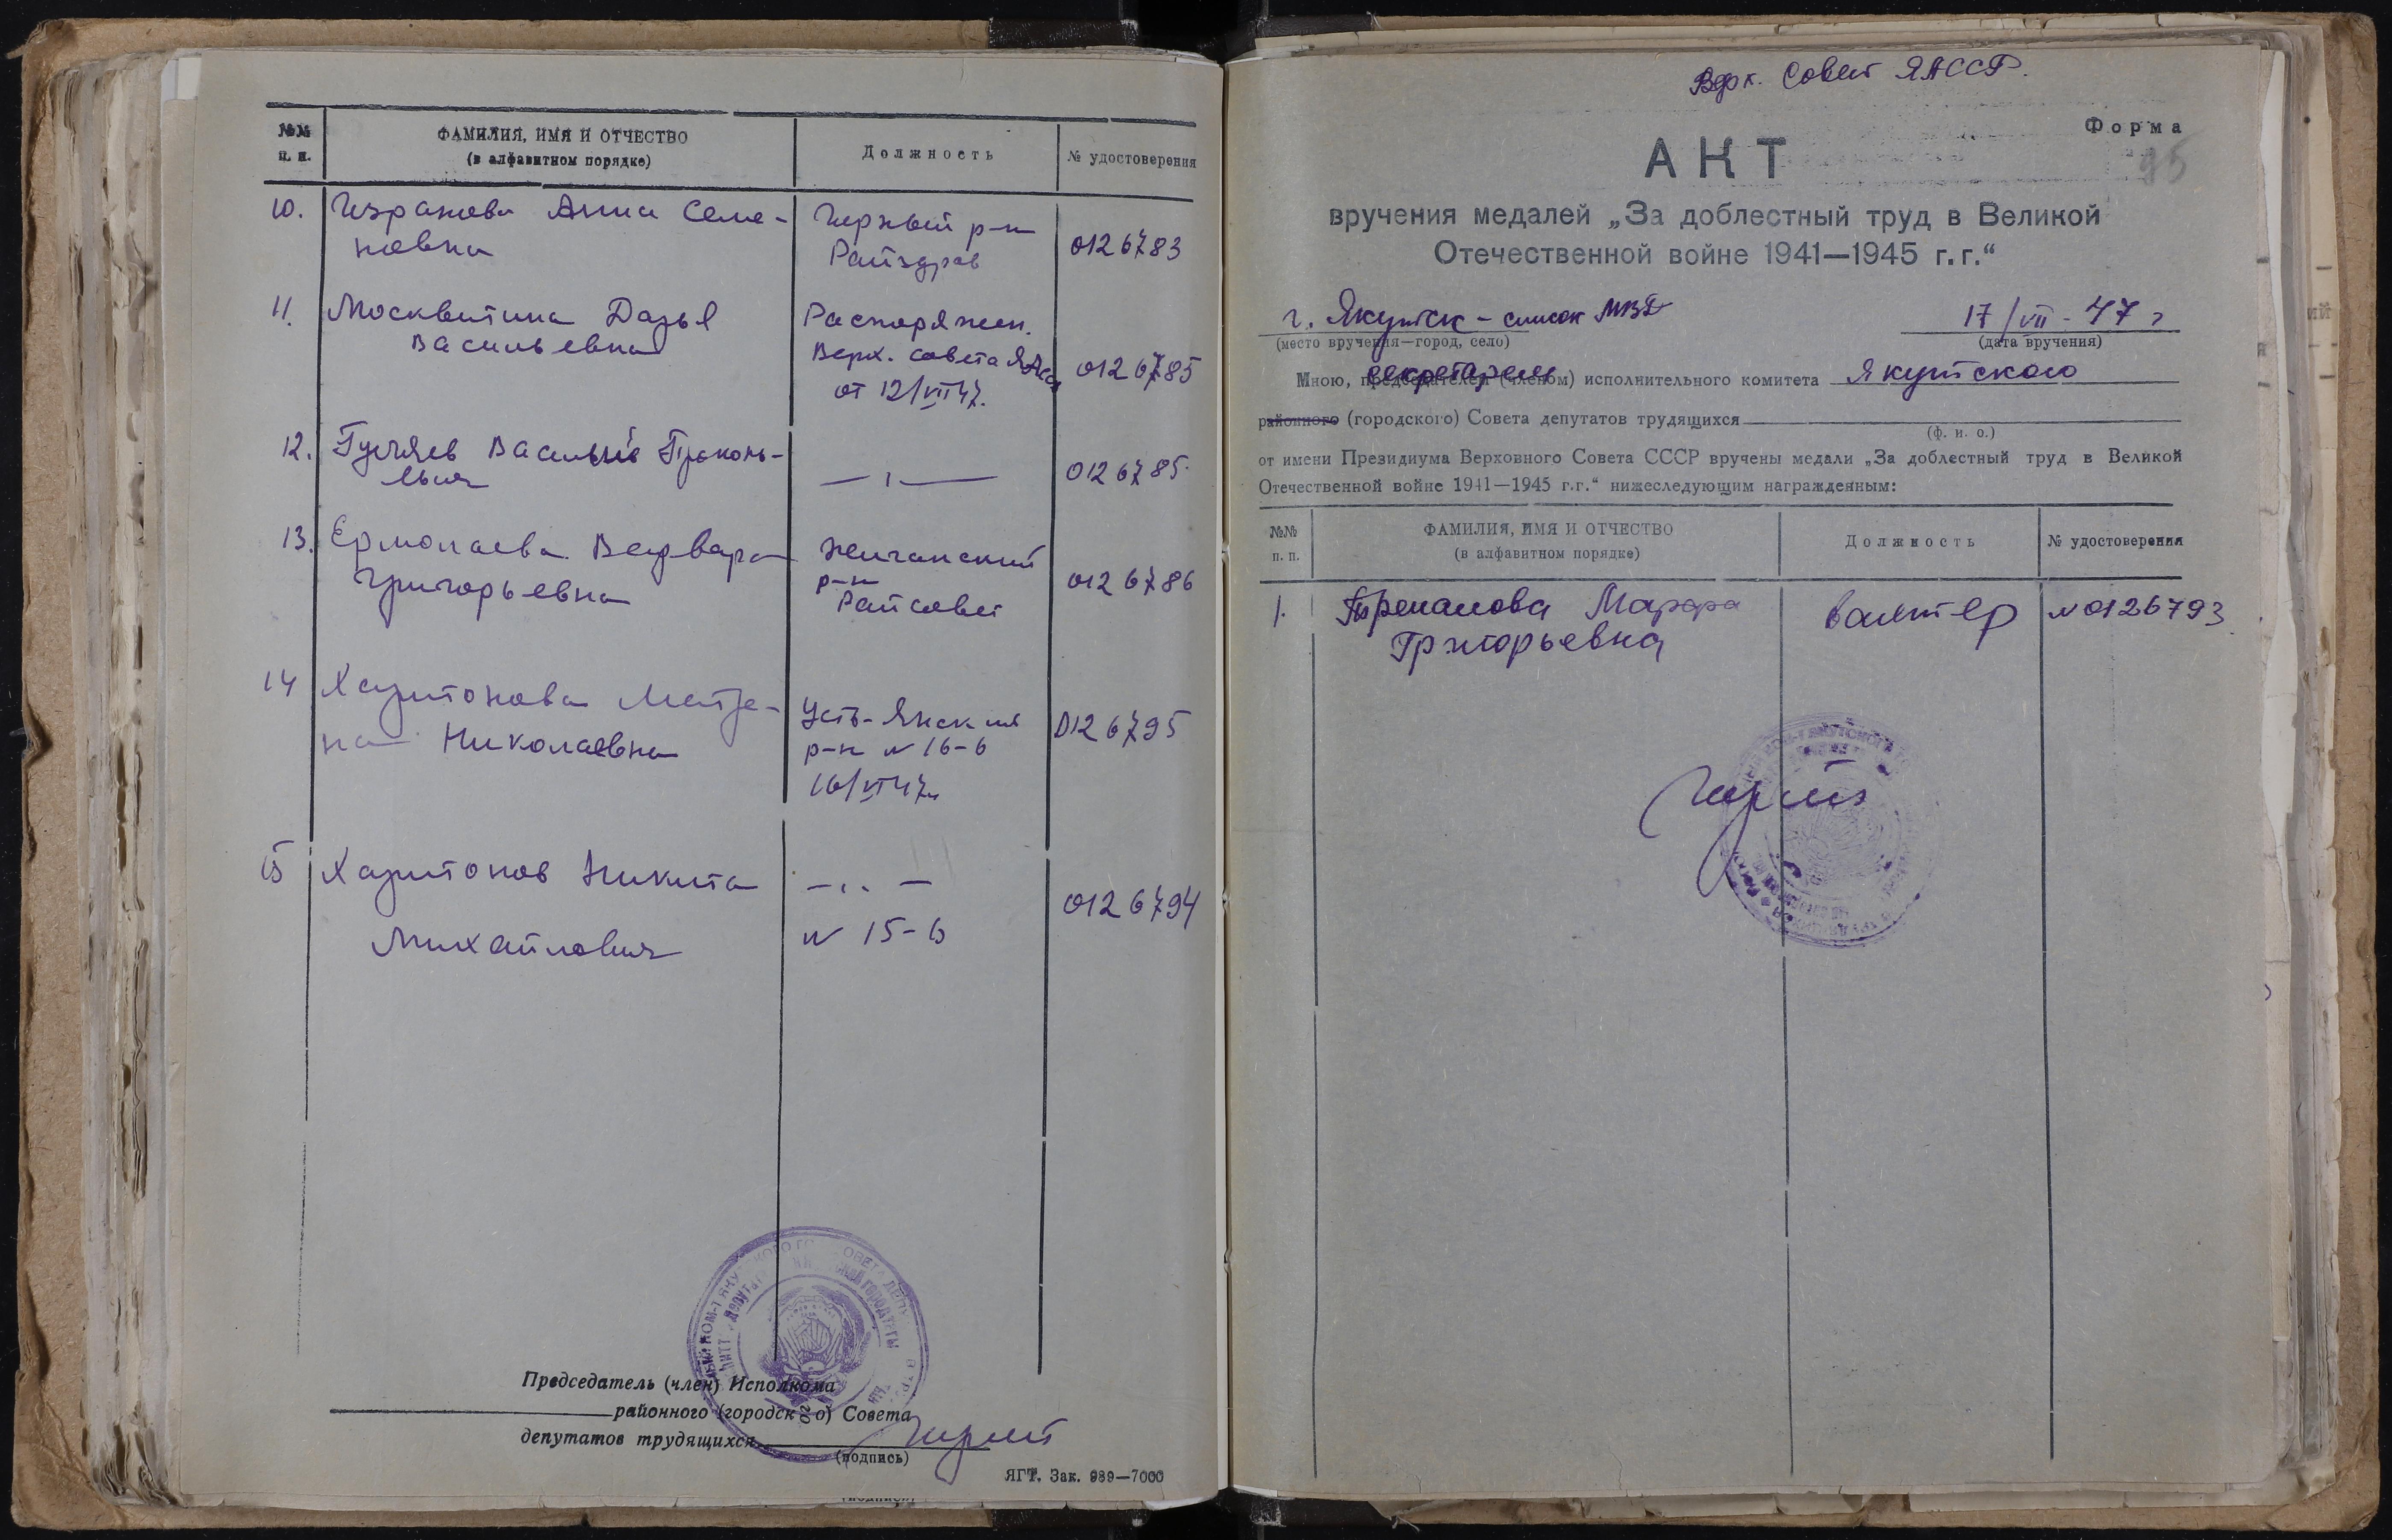 №№ п. п.
ФАМИЛИЯ, ИМЯ И ОТЧЕСТВО
(в алфавитном порядке)
Должность
№ удостоверения
10. Анна Семе-
новна
р-н
Райздрав
0126783
11. Москвитина Дарья
Васильевна
Распоряжен.
Верх. совета ЯАССР
от 12/VII 47.
0126785
12. Гуляев Василий Прокопь-
евич
— ‚ —
0126785
13. Ермолаева Варвара
Григорьевна
Жиганский
р-н
Райсовет
0126786
14 Харитонова Матре-
на Николаевна
Усть-Янский
р-н № 16-б
16/VI 47г.
0126795
15 Харитонов Никита
Михайлович
— „ —
№ 15-б
0126794
Председатель (член) Исполкома
районного (городского) Совета
депутатов трудящихся
(подпись)
ЯГТ. Зак. 989—7000
Верх. Совет ЯАССР.
Форма
95
АКТ
вручения медалей „За доблестный труд в Великой
Отечественной войне 1941—1945 г.г.“
г. Якутск - список МВД
17/VII - 47 г
(место вручения—город, село)
(дата вручения)
секретарем
Мною, председателем (членом) исполнительного комитета Якутского
районного (городского) Совета депутатов трудящихся
(ф. и. о.)
от имени Президиума Верховного Совета СССР вручены медали „За доблестный труд в Великой
Отечественной войне 1941—1945 г.г.“ нижеследующим награжденным:
№№ п. п.
ФАМИЛИЯ, ИМЯ И ОТЧЕСТВО
(в алфавитном порядке)
Должность
№ удостоверения
1. Марфа
Григорьевна
вахтер
№ 0126793